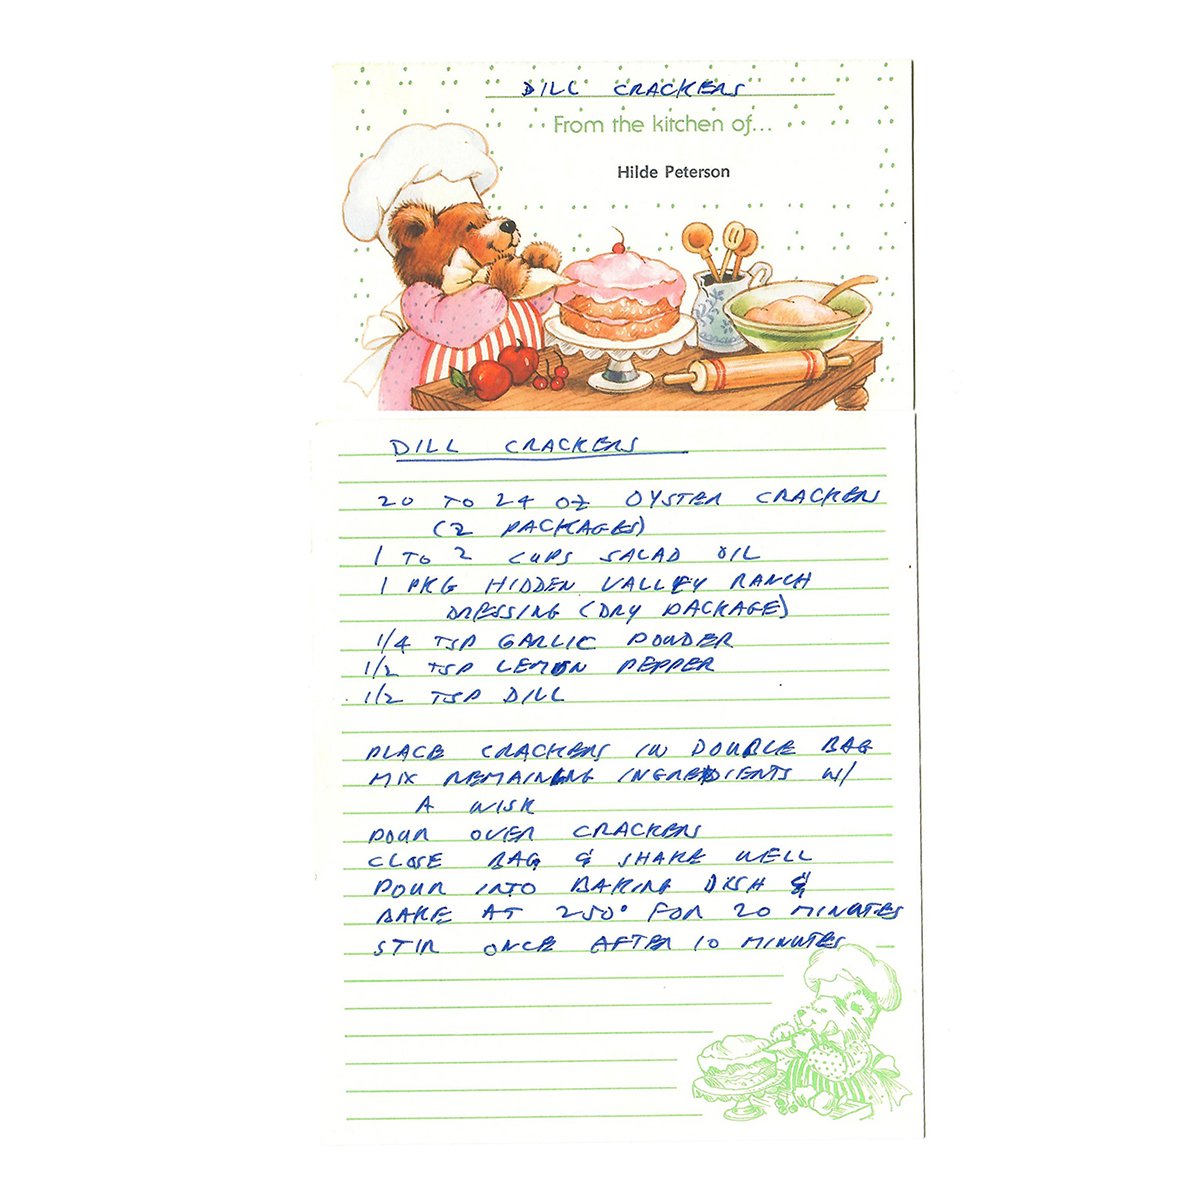 DILL CRACKERS
From the kitchen of...
Hilde Peterson
DILL CRACKERS
20 TO 24 OZ OYSTER CRACKERS
(2 PACKAGES)
1 TO 2 CUPS SALAD OIL
1 PKG HIDDEN VALLEY RANCH
DRESSING (DRY PACKAGE)
1/4 TSP GARLIC POWDER
1/2 TSP LEMON PEPPER
1/2 TSP DILL
PLACE CRACKERS IN DOUBLE BAG
MIX REMAINING INGREDIENTS W/
A WISK
POUR OVER CRACKERS
CLOSE BAG & SHAKE WELL
POUR INTO BAKING DISH &
BAKE AT 250° FOR 20 MINUTES
STIR ONCE AFTER 10 MINUTES